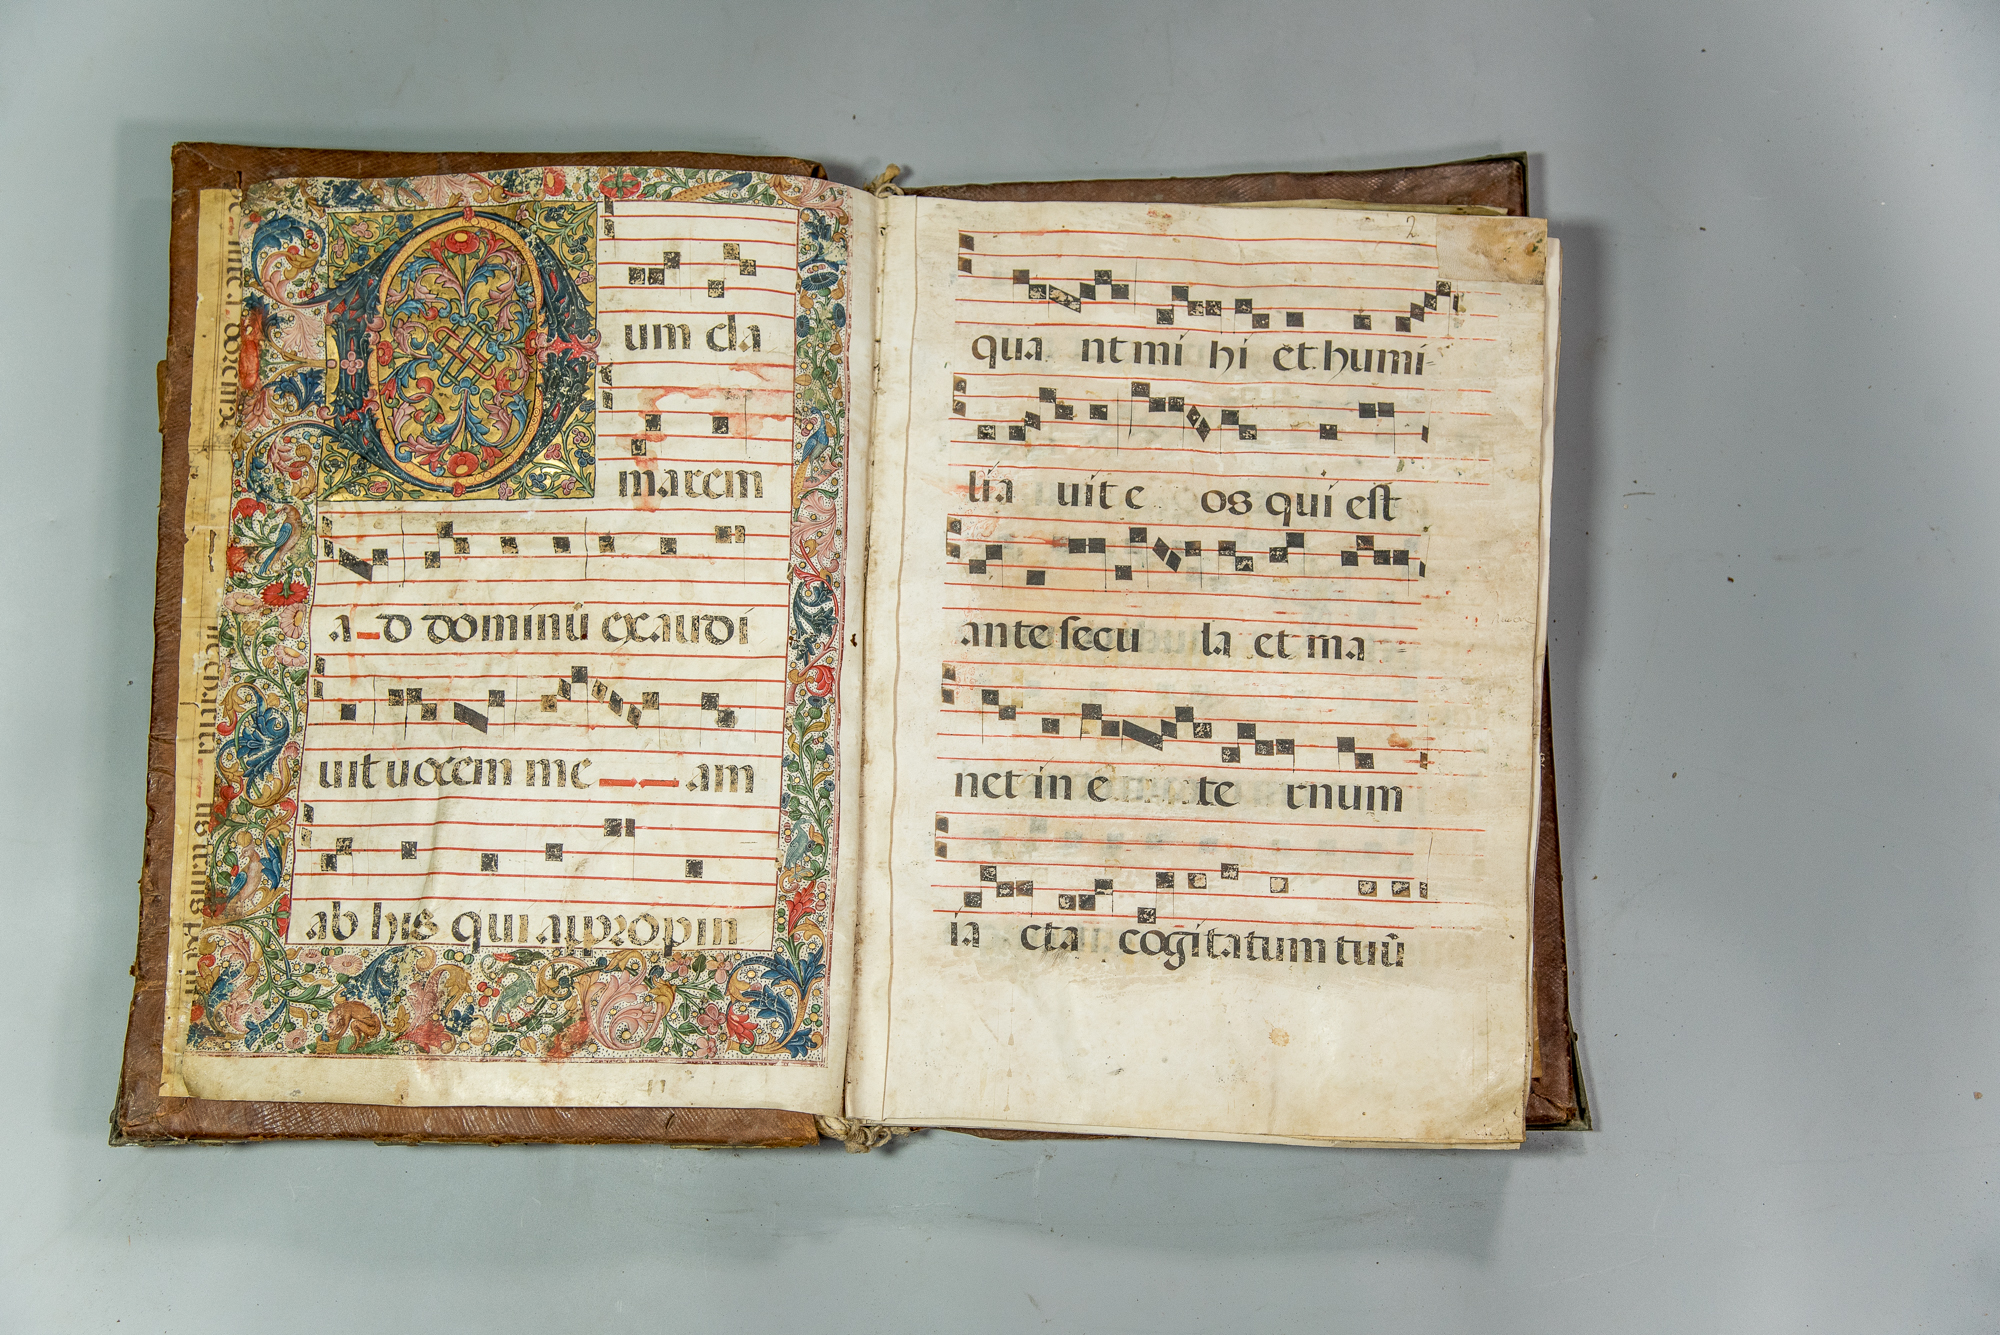 Dum cla
marem
a d dominū exaudi
uit uocem me am
ab his qui appropin
2
qua nt mi hi et humi-
lia uit e os qui est
ante secu la et ma
net in e te rnum
ia cta cogitatum tuū